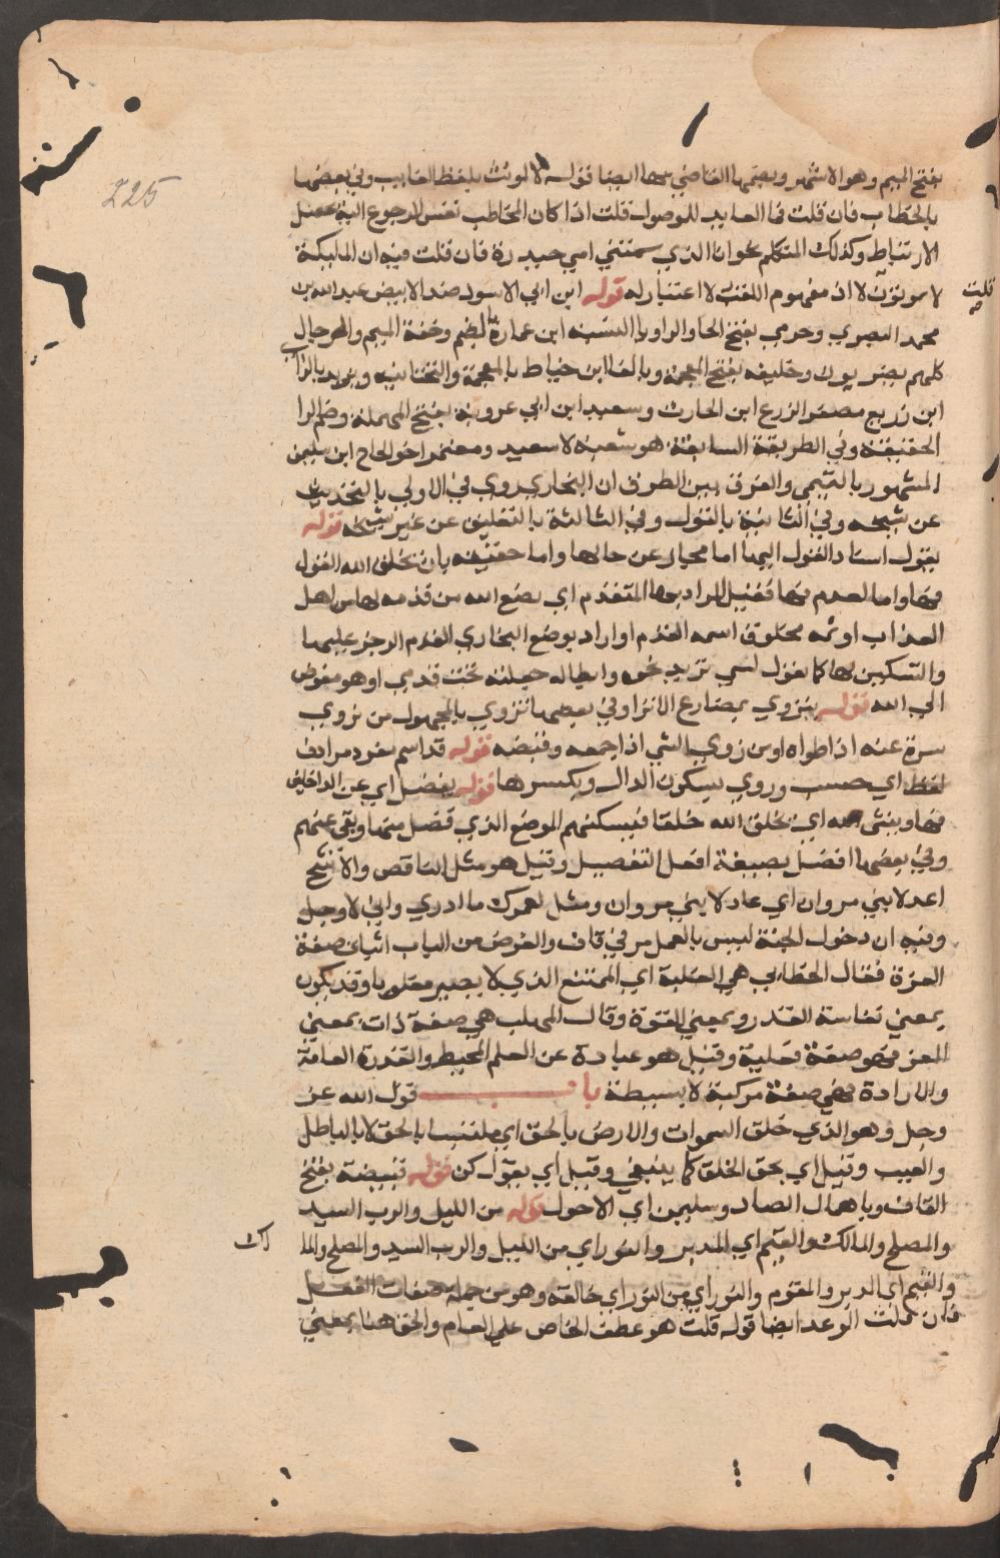 225
بفتح الميم وهو الاشهر وبضمها القاضي بها ايضا قوله لا يموت بلفظ الغايب وفي بعضها
بالخطاب فان قلت فما العايد للموصول قلت اذا كان المخاطب نفس المرجوع اليه يحصل
الارتباط وكذلك المتكلم نحو انا الذي سمتني امي حيدرة فان قلت فيه ان الملايكة
لا يموتون لا اذ مفهوم اللقب لا اعتبار له قوله ابن ابي الاسود ضد الابيض عبد الله بن
قلت
محمد البصري وحرمي بفتح الحا والرا وبالنسبة ابن عمارة بالضم وخفة الميم والرجال
كلهم بصريون وخليفه بفتح المعجمة وبالفا ابن خياط بالمعجمة والتحتانيه ويزيد بالزاي
ابن زريع مصغر الزرع ابن الحارث وسعيد ابن ابي عروبة بفتح المهملة وضم الرا
الخفيفة وفي الطريقة السابقة هو شعبة لا سعيد ومعتمر اخو الحاج ابن سليمن
المشهور بالتيمي والفرق بين الطرق ان البخاري روي في الاولي بالتحديث
عن شيخه وفي الثانية بالقول وفي الثالثة بالتعليق عن غير شيخه قوله
يقول اسناد القول اليها اما مجاز عن حالها واما حقيقة بان يخلق الله القول
فيها واما القدم فيها فقيل المراد بها المتقدم اي يضع الله من قدمه لها من اهل
العذاب او ثمه مخلوق اسمه القدم او اراد بوضع البخاري القدم الزجر عليها
والتسكين لها كما تقول لشي تريد محوه وابطاله جعلته تحت قدمي او هو مفوض
الي الله قوله ينزوي بمضارع الانزاوفي بعضها تزوي بالمجهول من زوي
سره عنه اذا طواه او من زوي الشي اذا جمعه وقبضه قوله قد اسم مفرد مرادف
لقط اي حسب وروي بسكون الدال وبكسرها قوله يفضل اي عن الداخلين
فيها وينشي الله اي يخلق الله خلقا فيسكنهم الموضع الذي فضل منها وبقي عنهم
وفي بعضها افضل بصيغة افعل التفضيل وقيل هو مثل الناقص والاشج
اعدلا بني مروان اي عادلا بني مروان ومثل لعمرك ما ادري واني لاوجل
وفيه ان دخول الجنة ليس بالعمل مر في قاف والغرض من الباب اثبات صفة
العزة فقال الخطابي هي الغلبة اي الممتنع الذي لا يصير مغلوبا وقد يكون
بمعني نفاسة القدر وبمعني القوة وقال المهلب هي صفة ذات بمعني
العز فهو صفة فعلية وقيل هو عبادة عن العلم المحيط والقدرة العامة
والارادة فهي صفة مركبة لا بسيطة باب قول الله عز
وجل وهو الذي خلق السموات والارض بالحق اي ملتبسا بالحق لا بالباطل
والعيب وقيل اي بحق الخلق كما ينبغي وقيل اي بقول كن قوله قبيضة بفتح
القاف وباهمال الصاد وسليمن اي الاحول قوله من الليل والرب السيد
والمصلح والمالك والقيم اي المدبر والنور اي من الليل والرب السيد والمصلح والما
لك
والقيم اي المدبر والمقوم والنور اي من النور اي خالقه وهو من جملة صفات الفعل
فان قلت الوعد ايضا قوله قلت هو عطف الخاص علي العام والحق هنا بمعني